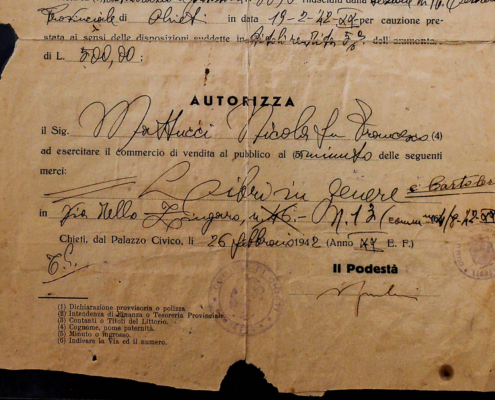 Provinciale di Chieti in data 19-2-42-XX per cauzione pre-
stata ai sensi delle disposizioni suddette in titoli rendita 5% dell'ammonta-
di L. 500,00:
AUTORIZZA
il Sig. Mattucci Nicola fu Francesco (4)
ad esercitare il commercio di vendita al pubblico al minuto delle seguenti
merci:
Libri in genere e Cartoler
in Via Nello Zingaro, n. 46.- N. 12
Chieti, dal Palazzo Civico, li 26 febbraio 1942 (Anno XX E. F.)
Il Podestà
(1) Dichiarazione provvisoria o polizza
(2) Intendenza di Finanza o Tesoreria Provinciale
(3) Contanti o Titoli del Littorio.
(4) Cognome, nome paternità.
(5) Minuto o ingrosso.
(6) Indicare la Via ed il numero.